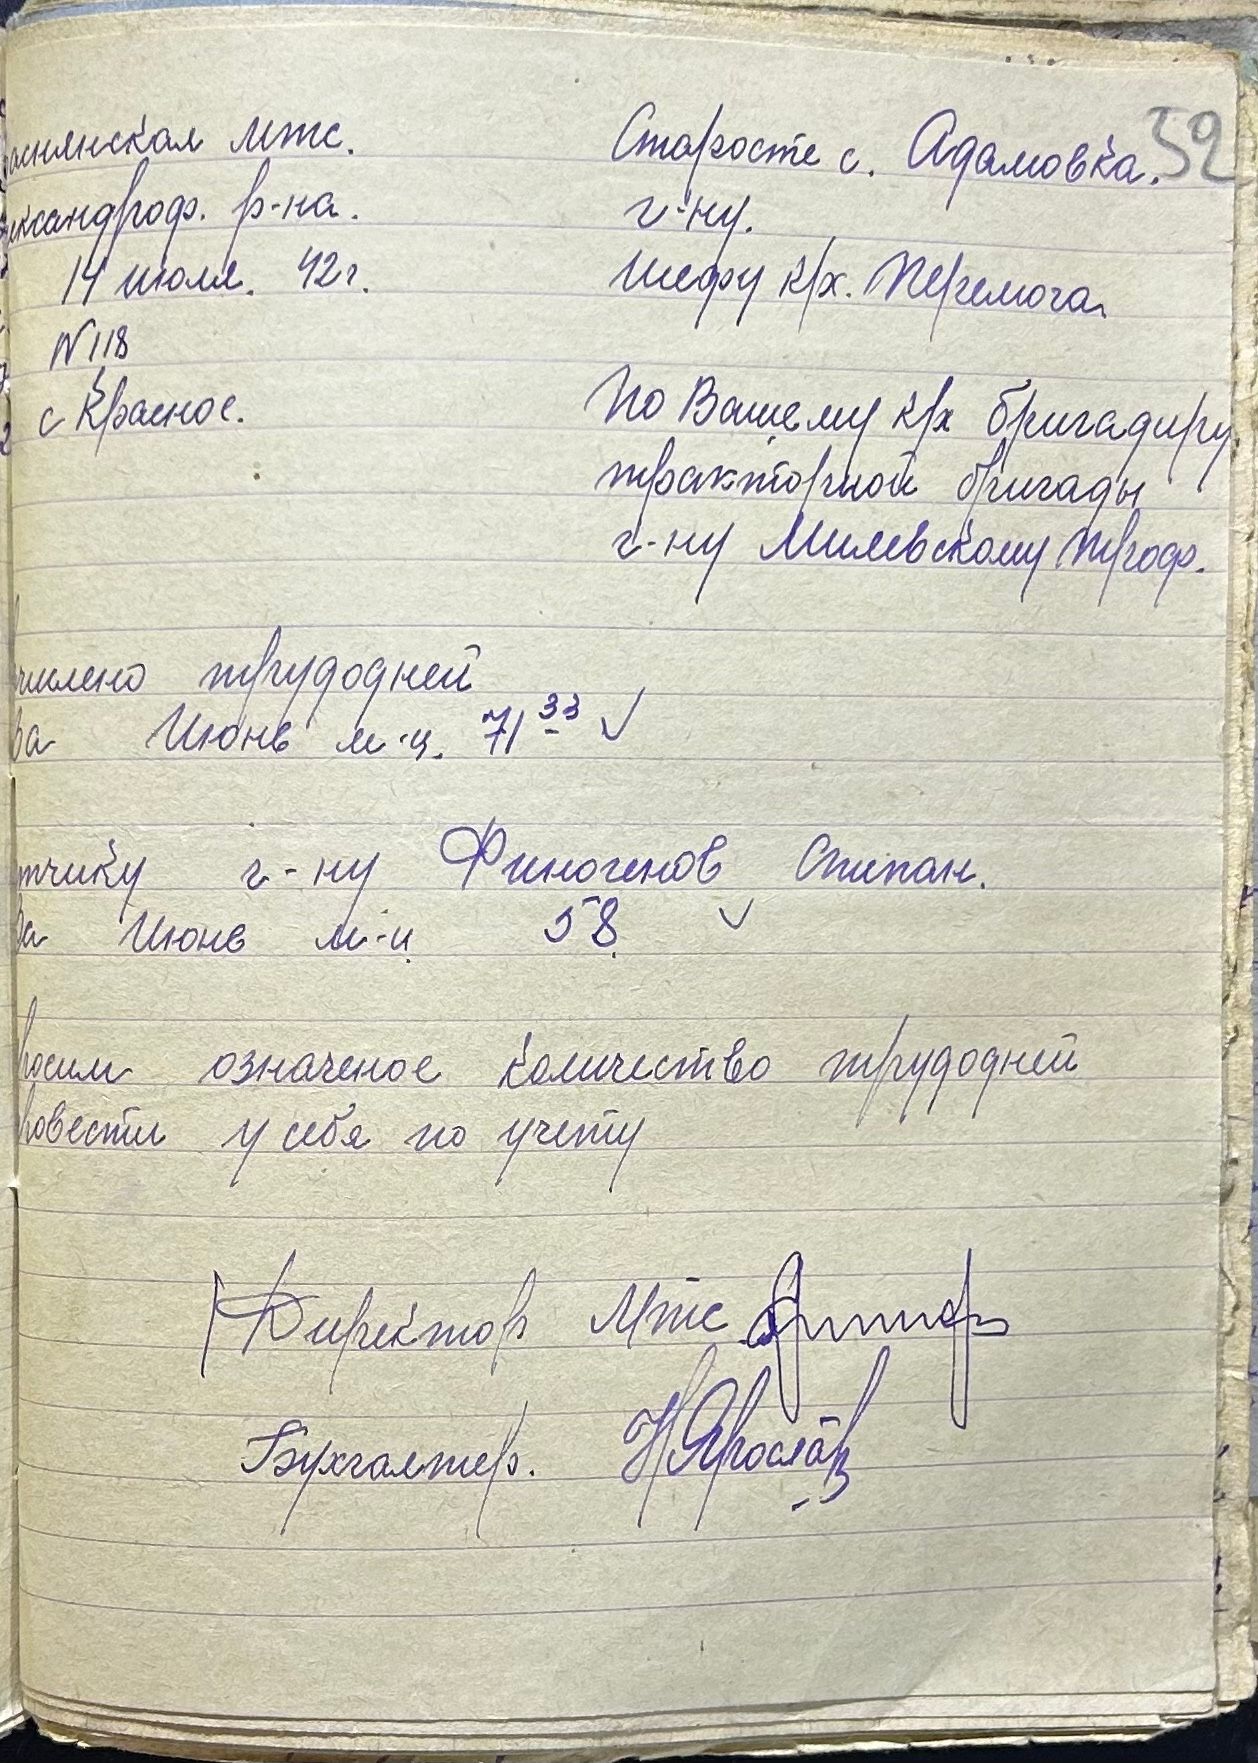 52
аснянская Мтс.
ександроф. р-на.
14 июля. 42 г.
N 118
с Красное.
Старосте с. Адамовка.
г-ну.
Шефу к/х. Перемога.
По Вашему к/х бригадиру
тракторной бригады
г-ну Милевскому Троф.
числено трудодней
за Июнь м-ц. 71 33
тчику г-ну Финогенов Степан.
за Июнь м-ц 58
росим означеное количество трудодней
ровести у себя по учету
Директор Мтс
Бухгалтер. Н Ярослав